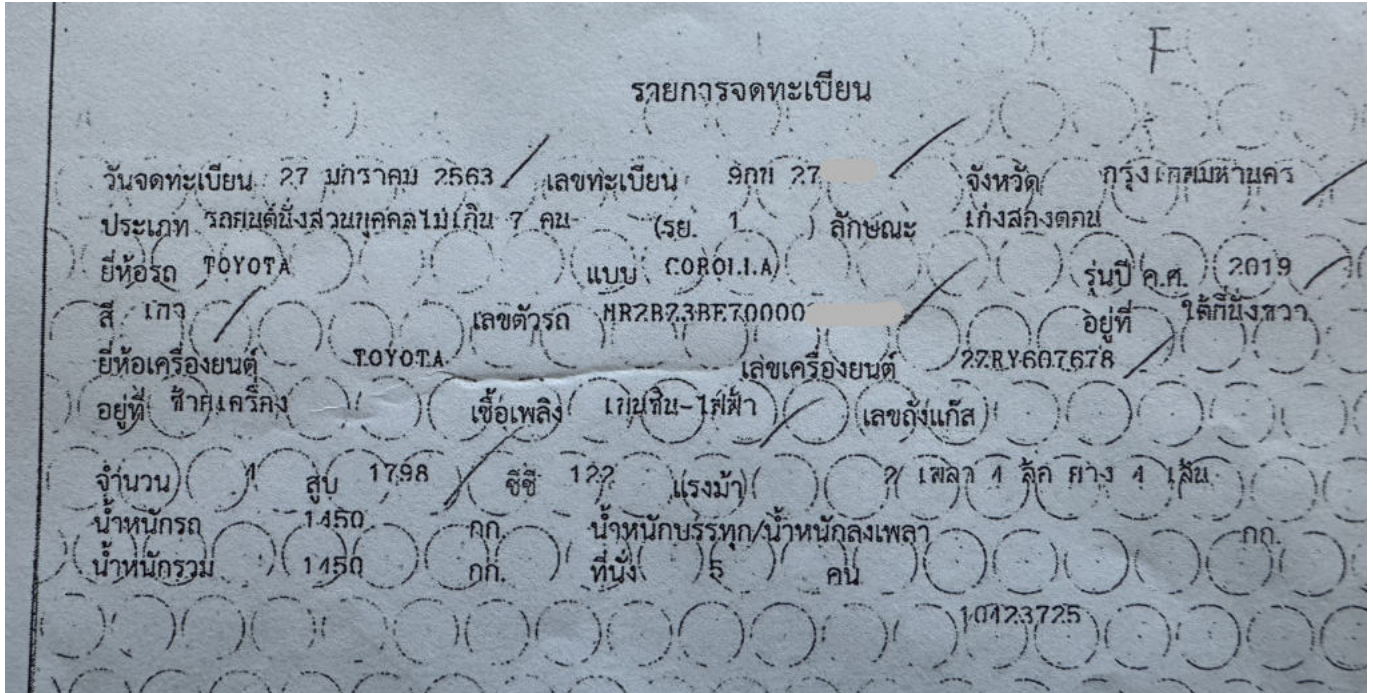 F
รายการจดทะเบียน
วันจดทะเบียน 27 มกราคม 2563 เลขทะเบียน 9กข 27 จังหวัด กรุงเทพมหานคร
ประเภท รถยนต์นั่งส่วนบุคคลไม่เกิน 7 คน (รย. 1 ) ลักษณะ เก๋งสองตอน
ยี่ห้อรถ TOYOTA แบบ COROLLA รุ่นปี ค.ศ. 2019
สี เทา เลขตัวรถ MR2BZ3BE70000 อยู่ที่ ใต้ที่นั่งขวา
ยี่ห้อเครื่องยนต์ TOYOTA เลขเครื่องยนต์ 2ZRY607678
อยู่ที่ ซ้ายเครื่อง เชื้อเพลิง เบนซิน-ไฟฟ้า เลขถังแก๊ส
จำนวน 4 สูบ 1798 ซีซี 122 แรงม้า 2 เพลา 4 ล้อ ยาง 4 เส้น
น้ำหนักรถ 1450 กก. น้ำหนักบรรทุก/น้ำหนักลงเพลา กก.
น้ำหนักรวม 1450 กก. ที่นั่ง 5 คน
10423725